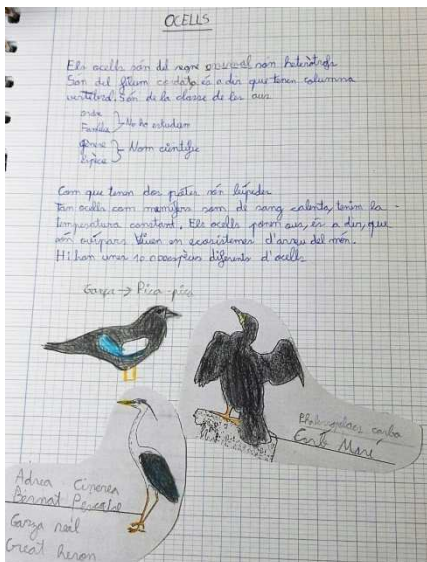 OCELLS
Els ocells són del regne animal són heteròtrofs
Són del fílum cordats és a dir que tenen columna
vertebral. Són de la classe de les aus
ordre
Família } No ho estudiem
gènere
Espècie } Nom científic
Com que tenen dos potes són bípedes
Tan ocells com mamífers som de sang calenta, tenim la
temperatura constant. Els ocells ponen ous, és a dir, que
són ovípars Viuen en ecosistemes d'arreu del món.
Hi han unes 10 000 espècies diferents d'ocells
Garsa → Pica-pica
Phalacrocorax carbo
Corb Marí
Ardea Cinerea
Bernat Pescaire
Garza real
Great heron